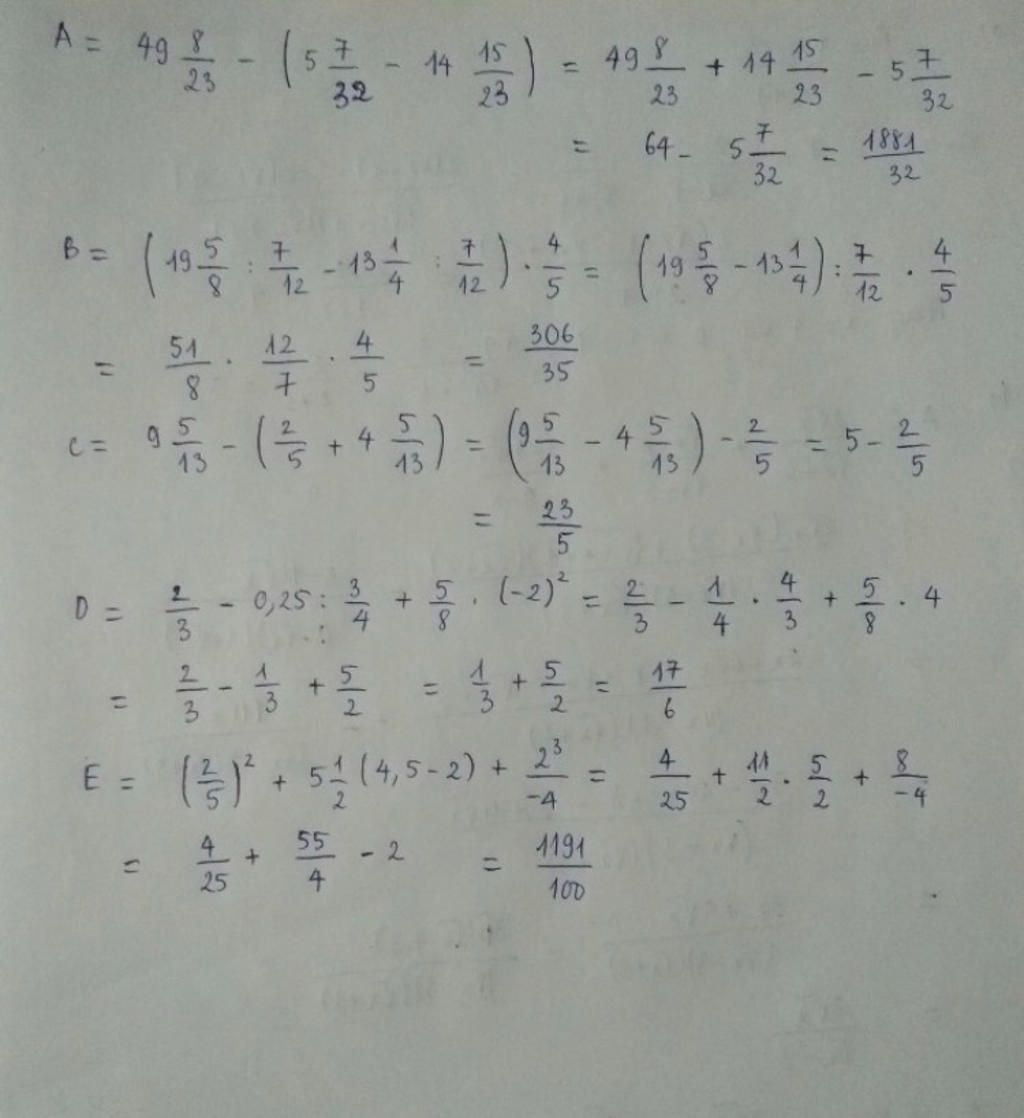 A = 49 8/23 - (5 7/32 - 14 15/23) = 49 8/23 + 14 15/23 - 5 7/32
= 64 - 5 7/32 = 1881/32
B = (19 5/8 : 7/12 - 13 1/4 : 7/12) . 4/5 = (19 5/8 - 13 1/4) : 7/12 . 4/5
= 51/8 . 12/7 . 4/5 = 306/35
C = 9 5/13 - (2/5 + 4 5/13) = (9 5/13 - 4 5/13) - 2/5 = 5 - 2/5
= 23/5
D = 2/3 - 0,25 : 3/4 + 5/8 . (-2)² = 2/3 - 1/4 . 4/3 + 5/8 . 4
= 2/3 - 1/3 + 5/2 = 1/3 + 5/2 = 17/6
E = (2/5)² + 5 1/2 (4,5 - 2) + 2³/-4 = 4/25 + 11/2 . 5/2 + 8/-4
= 4/25 + 55/4 - 2 = 1191/100